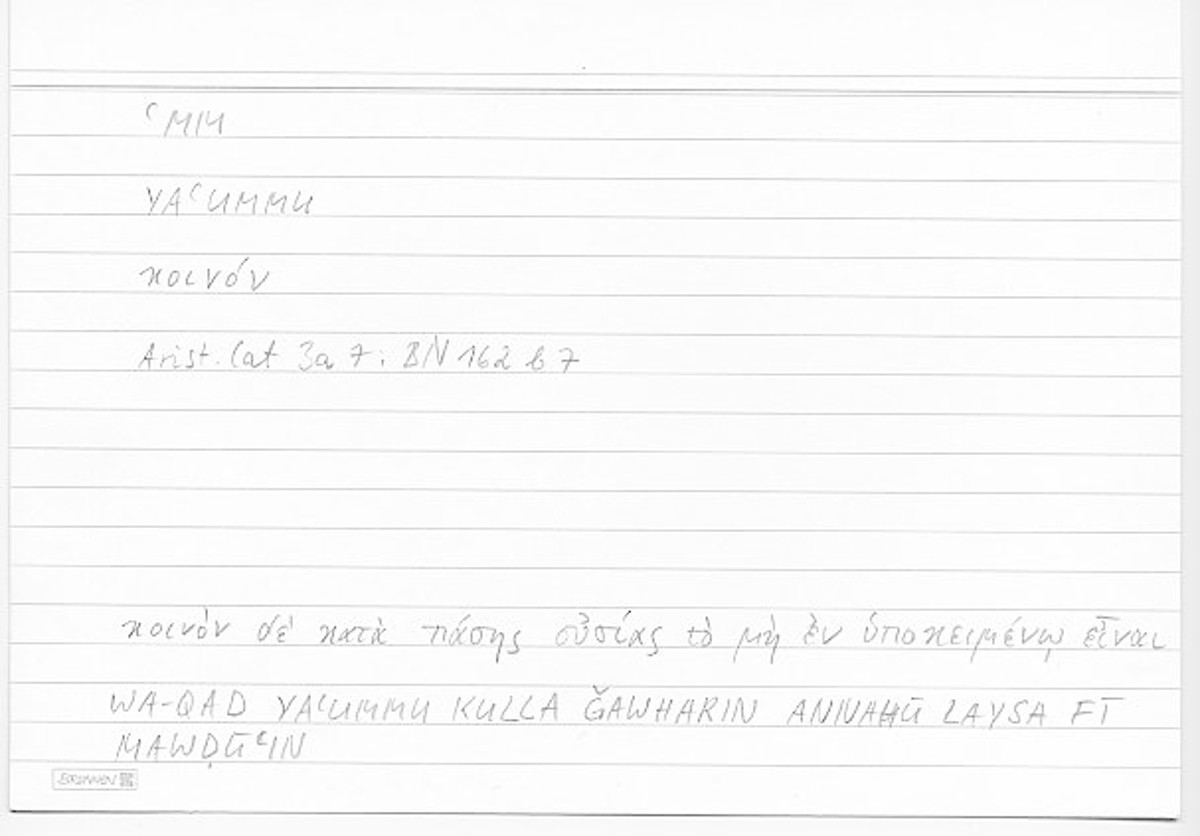 ʿMM
YAʿUMMU
κοινόν
Arist. Cat 3a 7; BN 162 b 7
κοινὸν δὲ κατὰ πάσης οὐσίας τὸ μὴ ἐν ὑποκειμένῳ εἶναι
WA-QAD YAʿUMMU KULLA ǦAWHARIN ANNAHŪ LAYSA FĪ
MAWḌŪʿIN
BRUNNEN